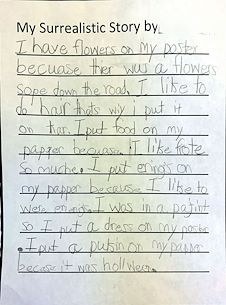 My Surrealistic Story by
I have flowers on my poster
becuase ther was a flowers
sope down the road. I like to
do hair thats wiy i put it
on thar. I put food on my
papper becuase I like frote
so muche. I put erings on
my papper because I like to
were erings. I was in a
so I put a dress on my poster
. I put a on my papper
because it was hollween.